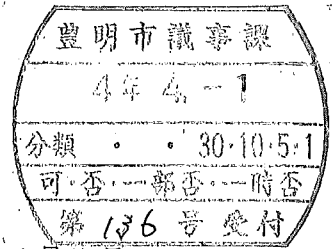 豊明市議事課
4年4.-1
分類 ・ ・ 30・10・5・1
可・否・一部否・一時否
第 136 号受付